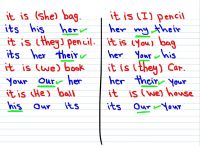 it is (she) bag.
its his her
it is (they) pencil.
its her their
it is (we) book
your our her
it is (He) ball
his our its
it is (I) pencil
her my their
it is (you) bag
her your his
it is (they) Car.
her their your
it is (we) house
its our your